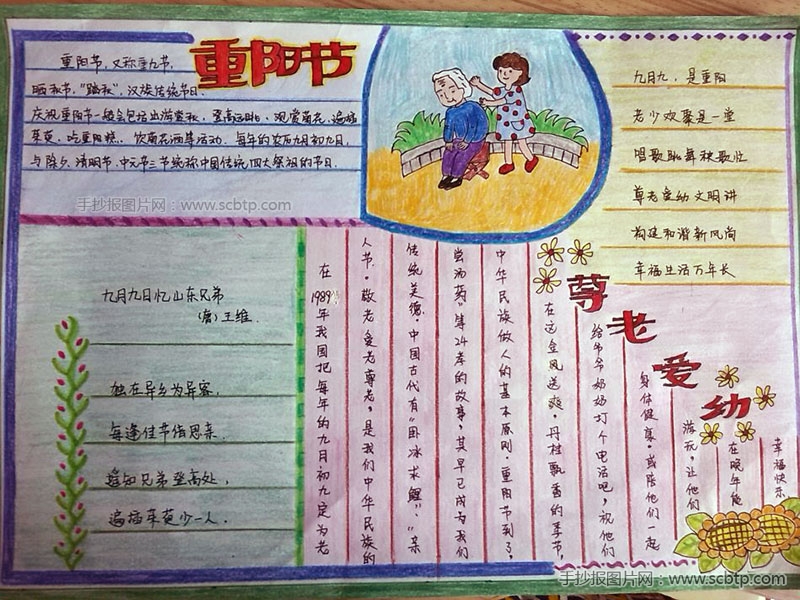 重阳节
重阳节，又称重九节，
晒秋节，“踏秋”，汉族传统节日.
庆祝重阳节一般会包括出游赏秋、登高远眺、观赏菊花、遍插
茱萸、吃重阳糕、饮菊花酒等活动，每年的农历九月初九日，
与除夕、清明节、中元节三节统称中国传统四大祭祖的节日.
手抄报图片网：www.scbtp.com
九月九，是重阳
老少欢聚是一堂
唱歌跳舞秧歌忙
尊老爱幼文明讲
构建和谐新风尚
幸福生活万年长
九月九日忆山东兄弟
(唐) 王维
独在异乡为异客，
每逢佳节倍思亲.
遥知兄弟登高处，
遍插茱萸少一人.
尊老爱幼
在1989年我国把每年的九月初九定为老
人节.敬老爱老尊老，是我们中华民族的
传统美德.中国古代有“卧冰求鲤”、“亲
尝汤药”等24孝的故事，其早已成为我们
中华民族做人的基本原则.重阳节到了，
在这金风送爽，丹桂飘香的季节，
给爷爷奶奶打个电话吧，祝他们
身体健康.或陪他们一起
游玩，让他们
在晚年能
幸福快乐
手抄报图片网：www.scbtp.com